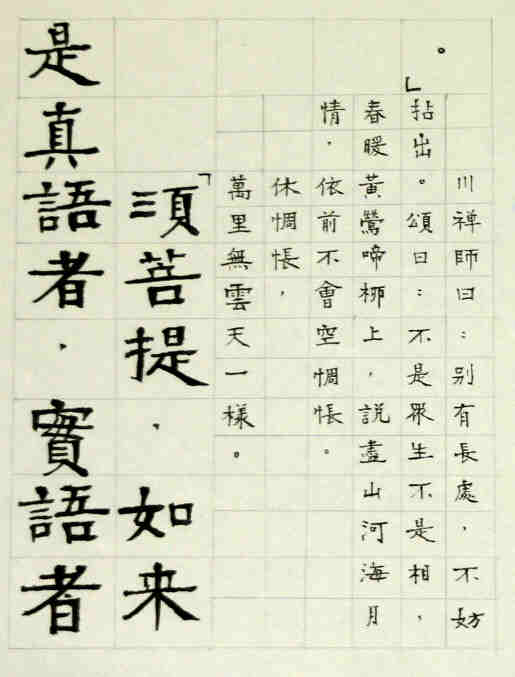 。」
川禪師曰：别有長處，不妨
拈出。頌曰：不是眾生不是相，
春暖黃鶯啼柳上，説盡山河海月
情，依前不會空惆悵。
休惆悵，
萬里無雲天一樣。
「須菩提，如来
是真語者，實語者